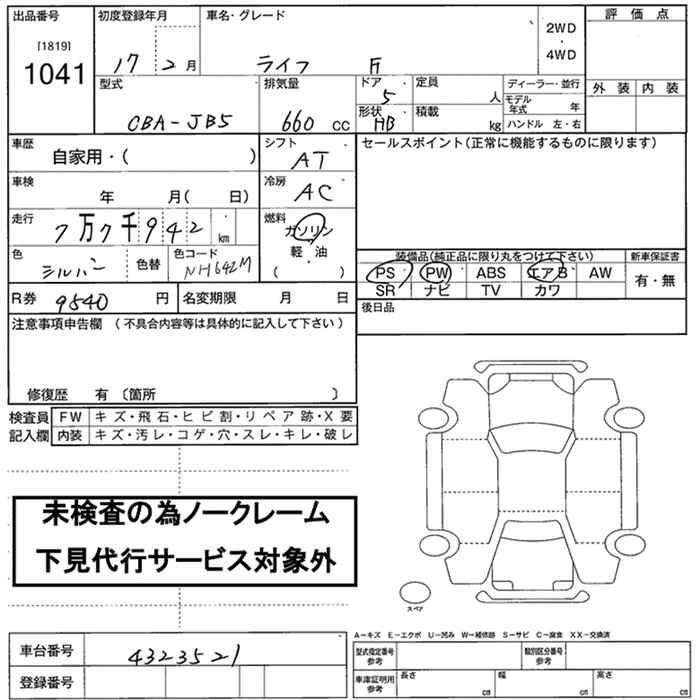 出品番号 初度登録年月 車名・グレード 評価点
[1819] 1041
17年 2月 ライフ F
2WD・4WD
型式 排気量 ドア 定員 ディーラー・並行 外装 内装
5 人 モデル年式 年
CBA-JB5 660 cc 形状 HB 積載 kg ハンドル 左・右
車歴 自家用・( ) シフト AT セールスポイント(正常に機能するものに限ります)
車検 年 月( 日) 冷房 AC
走行 7万7千942 km 燃料 ガソリン 軽・油 ( )
色 シルバー 色替 色コード NH642M
装備品(純正品に限り丸をつけて下さい) 新車保証書
PS PW ABS エアB AW 有・無
SR ナビ TV カワ
R券 9540 円 名変期限 月 日 後日品
注意事項申告欄 (不具合内容等は具体的に記入して下さい)
修復歴 有 〔箇所 〕
検査員 FW キズ・飛石・ヒビ割・リペア跡・X要
記入欄 内装 キズ・汚レ・コゲ・穴・スレ・キレ・破レ
未検査の為ノークレーム
下見代行サービス対象外
スペア
A－キズ E－エクボ U－凹み W－補修跡 S－サビ C－腐食 XX－交換済
車台番号 4323521 型式指定番号 参考 類別区分番号 参考
登録番号 車庫証明用 参考 長さ cm 幅 cm 高さ cm